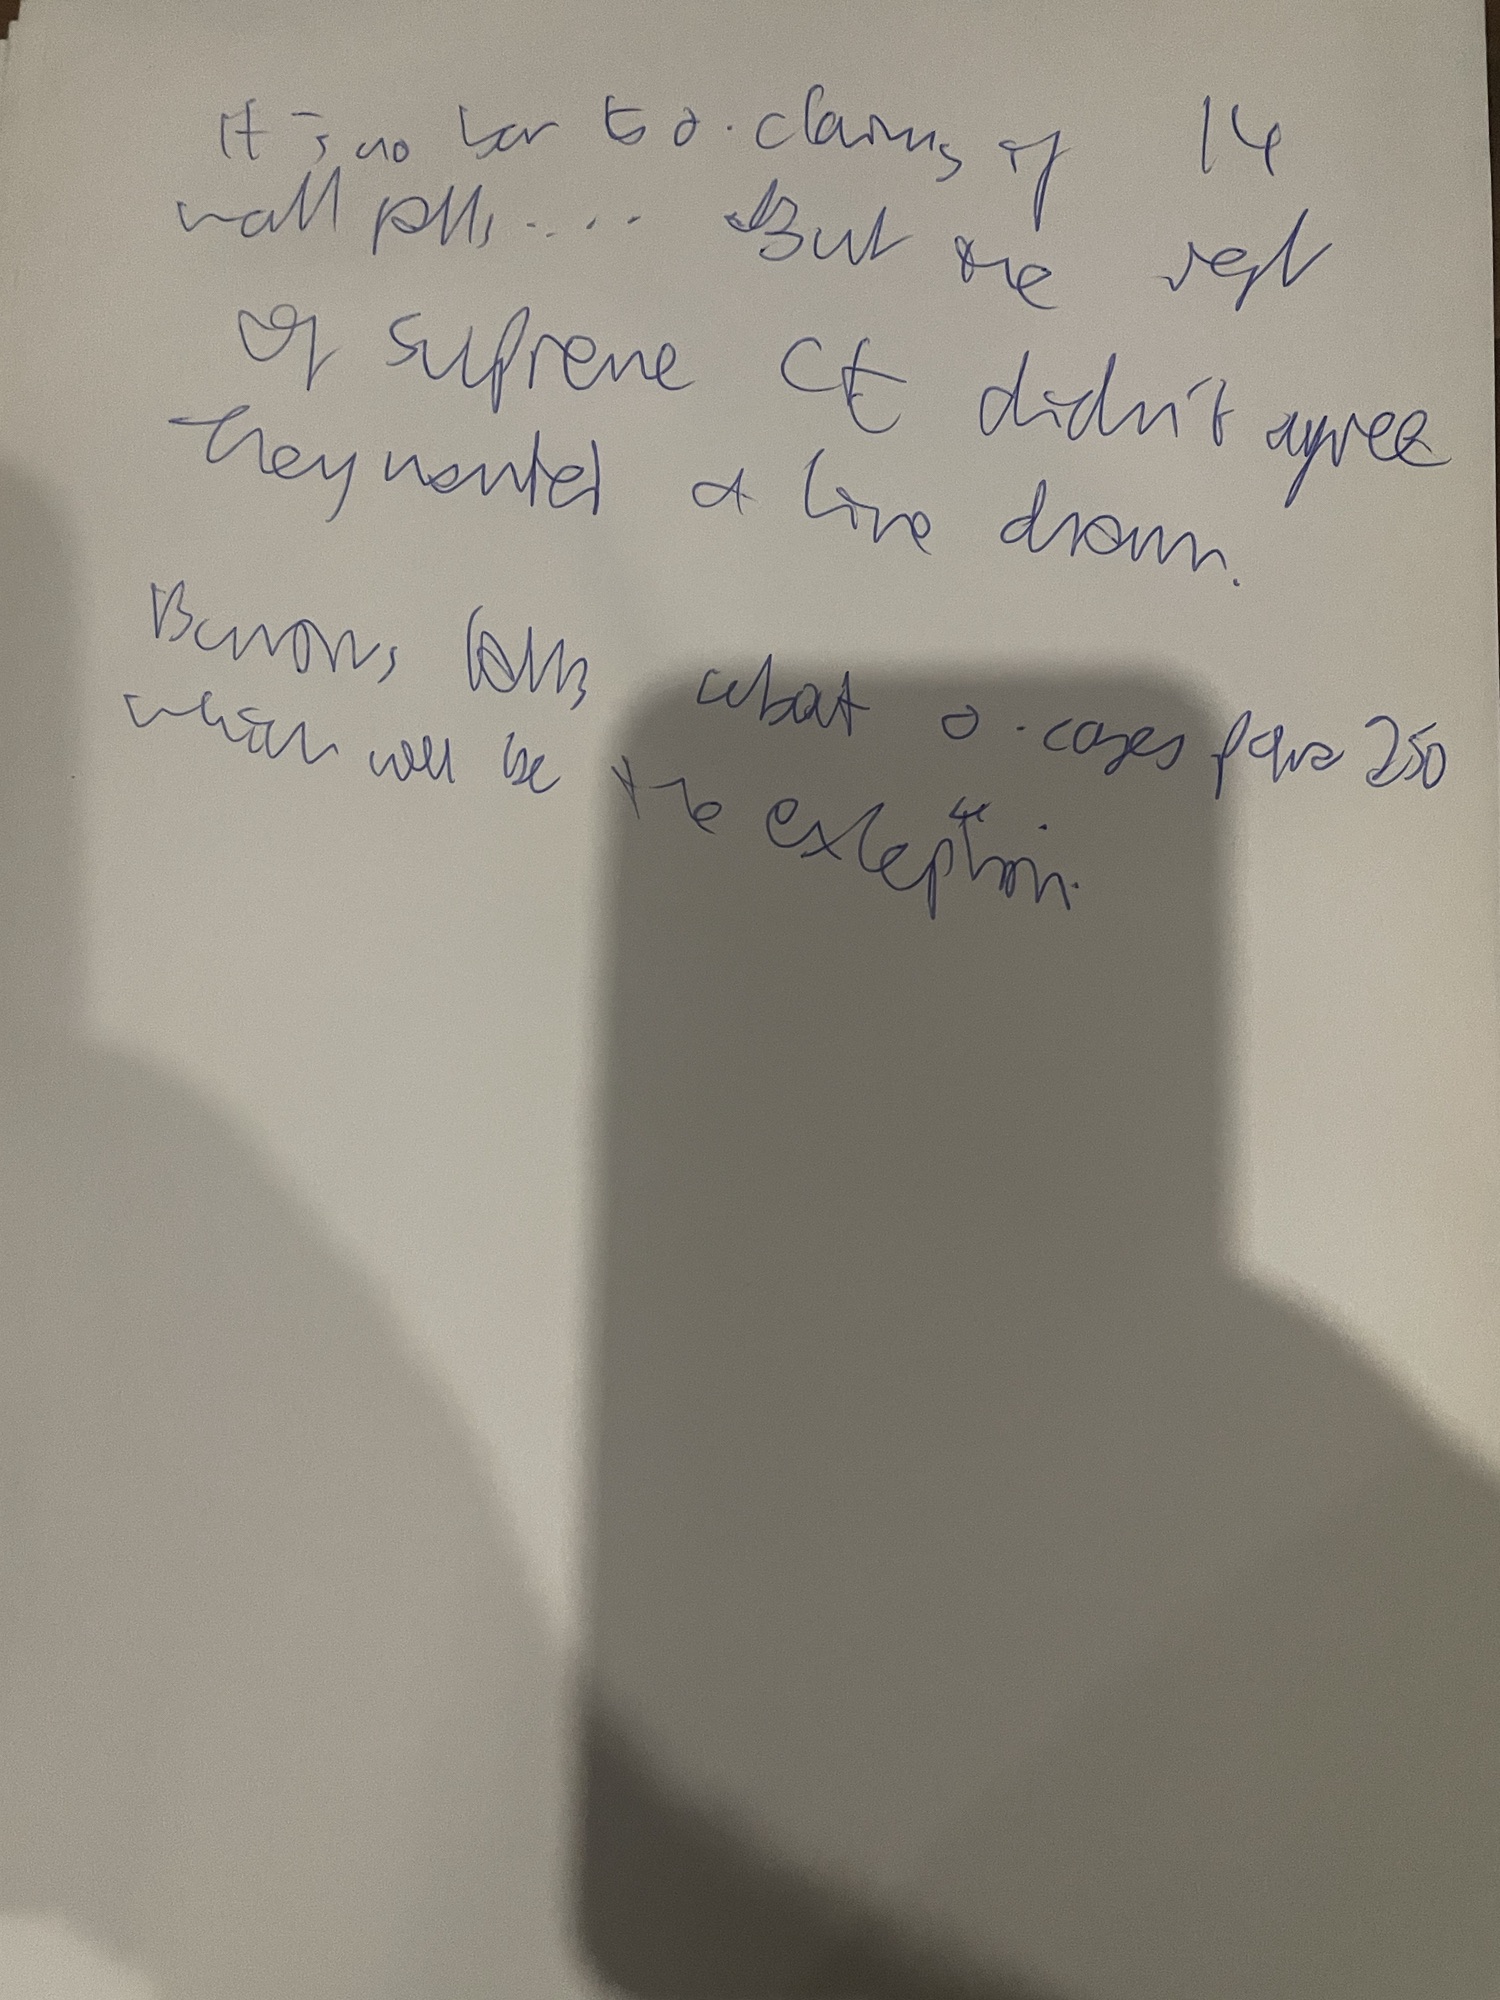 It is no bar to o. claims of 14
wall pths..... But the rest
of supreme Ct didn't agree
they wanted a line drawn.
Burrows talks about o. cases para 250
which will be the exception.